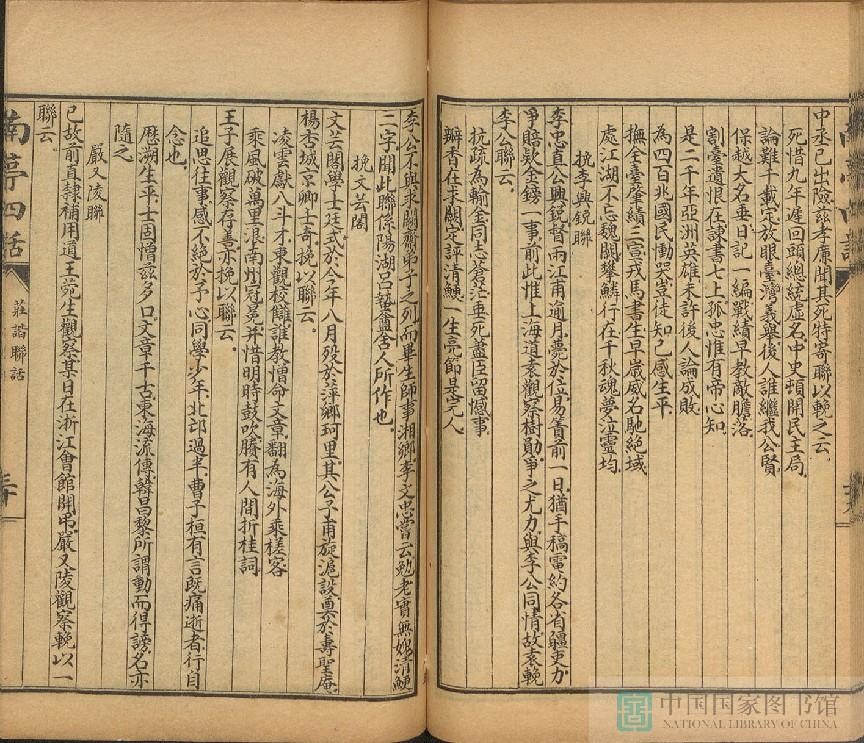 中丞已出險茲孝廉聞其死特寄聯以輓之云
死惜九年遲回頭總統虛名中史頓開民主局
論難千載定放眼臺灣義舉後人誰繼我公賢
保越大名垂日記一編戰績早教敵膽落
割臺遺恨在諫書七上孤忠惟有帝心知
是二千年亞洲英雄未許後人論成敗
為四百兆國民慟哭豈徒知己感生平
撫全臺肇績三宣戎馬書生早歲威名馳絶域
處江湖不忘魏闕攀鱗行在千秋魂夢泣靈均
挽李興銳聯
李忠直公興銳督兩江甫逾月薨於位易簀前一日猶手稿電約各省疆吏力
爭賠欵金鎊一事前此惟上海道袁觀察樹勛爭之尤力與李公同情故袁輓
李公聯云
抗疏為輸金同志蒼茫垂死藎臣留憾事
瓣香在求闕定評清鯁一生亮節是完人
李公不與求闕齋弟子之列而畢生師事湘鄉李文忠嘗云勉老實無媿清鯁
三字聞此聯係陽湖呂蟄盦舍人所作也
挽文芸閣
文芸閣學士廷式於今年八月歿於萍鄉珂里其公子甫旋滬設奠於壽聖庵
楊杏城京卿士奇挽以聯云
凌雲獻八斗才東觀校讎誰教憎命文章翻為海外乘槎客
乘風破萬里浪南州冠冕并惜明時鼓吹賸有人間折桂詞
王子展觀察存善亦挽以聯云
追思往事感不絶於予心同學少年北邙過半曹子桓有言既痛逝者行自
念也
歷溯生平士固憎茲多口文章千古東海流傳韓昌黎所謂動而得謗名亦
隨之
嚴又淩聯
已故前直隸補用道王菀生觀察某日在浙江會館開弔嚴又陵觀察輓以一
聯云
南亭四話
莊諧聯話
三十
中国国家图书馆
NATIONAL LIBRARY OF CHINA